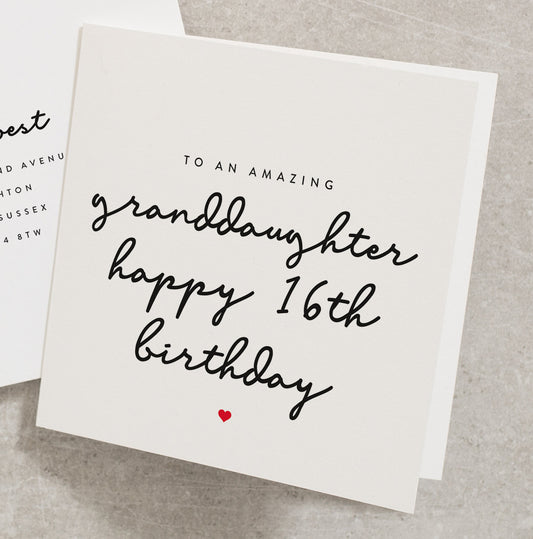 best
AVENU
SUSSEX
4 8TW
TO AN AMAZING
granddaughter
happy 16th
birthday